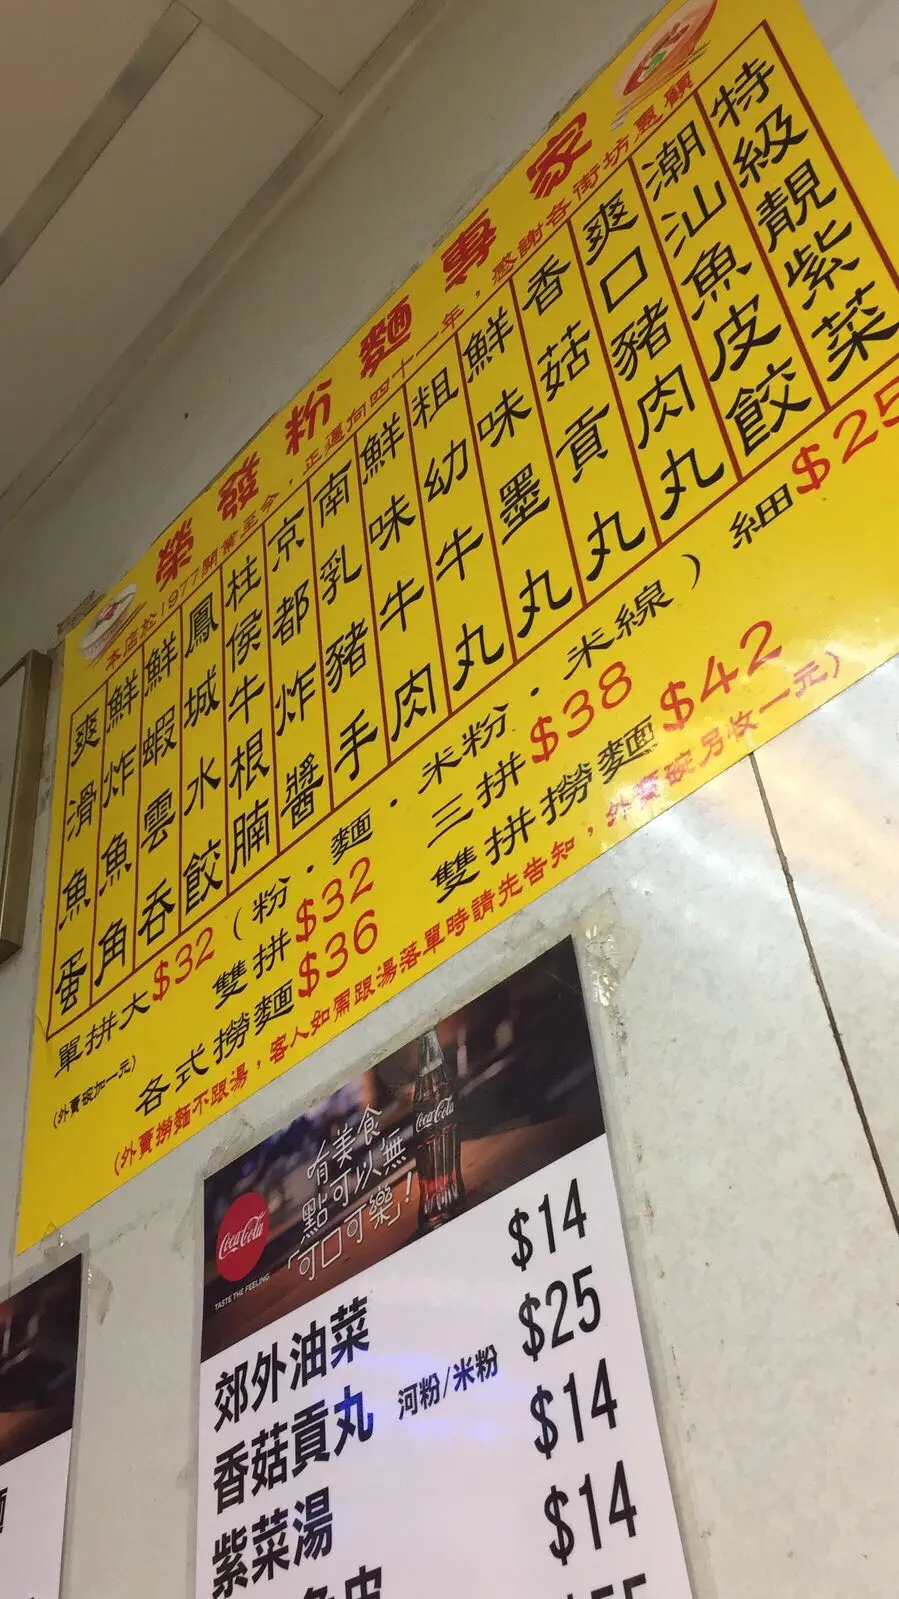 榮發粉麵專家
本店於1977開業至今，正邁向四十一年，感謝各街坊惠顧
特級靚紫菜
潮汕魚皮餃
爽口豬肉丸
香菇貢丸
鮮味墨丸
粗幼牛丸
鮮味牛肉
南乳豬手
京都炸醬
柱侯牛根腩
鳳城水餃
鮮蝦雲吞
鮮炸魚角
爽滑魚蛋
單拼大$32（粉．麵．米粉．米線）細$25
(外賣碗加一元)
雙拼$32 三拼$38
各式撈麵$36 雙拼撈麵$42
(外賣撈麵不跟湯，客人如需跟湯落單時請先告知，外賣碗另收一元)
有美食
點可以無
「可口可樂」!
Coca-Cola
Coca-Cola
TASTE THE FEELING
郊外油菜 $14
香菇貢丸 河粉/米粉 $25
紫菜湯 $14
皮 $14